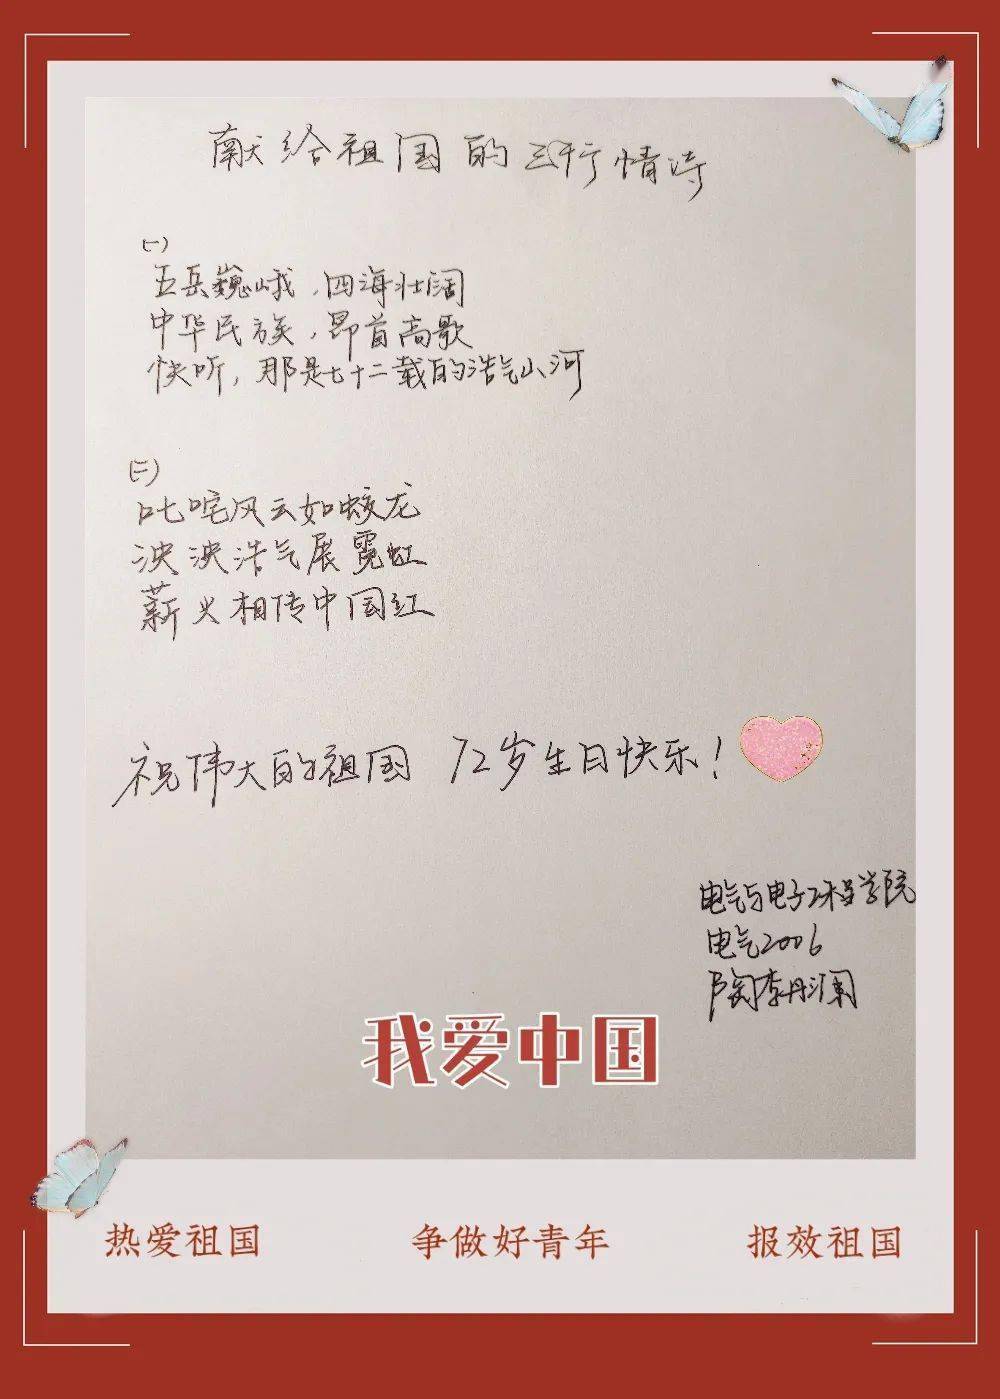 献给祖国的三行情诗
(一)
五岳巍峨，四海壮阔
中华民族，昂首高歌
快听，那是七十二载的浩气山河
(二)
叱咤风云如蛟龙
泱泱浩气展霓虹
薪火相传中国红
祝伟大的祖国 72岁生日快乐！
电气与电子工程学院
电气2006
陶李丹澜
我爱中国
热爱祖国 争做好青年 报效祖国